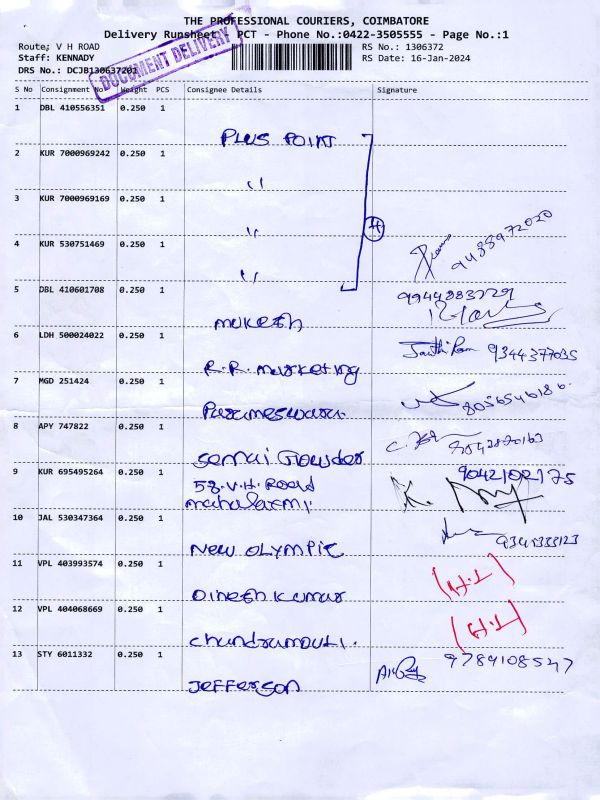 THE PROFESSIONAL COURIERS, COIMBATORE
Delivery Runsheet PCT - Phone No.:0422-3505555 - Page No.:1
Route: V H ROAD RS No.: 1306372
Staff: KENNADY RS Date: 16-Jan-2024
DRS No.: DCJB130637201
DOCUMENT DELIVERY
S No Consignment No Weight PCS Consignee Details Signature
1 DBL 410556351 0.250 1
PLUS POINT
2 KUR 7000969242 0.250 1
"
3 KUR 7000969169 0.250 1
"
4
4 KUR 530751469 0.250 1
" 9438972020
5 DBL 410601708 0.250 1 9944883729
mukesh
6 LDH 500024022 0.250 1 9344377035
R.R. marketing
7 MGD 251424 0.250 1 8056546186
Parameswara
8 APY 747822 0.250 1
Semai Gowder
9 KUR 695495264 0.250 1 9042102175
58.V.H. Road
mahalaxmi.
10 JAL 530347364 0.250 1
NEW OLYMPIC
11 VPL 403993574 0.250 1
Dinesh Kumar
12 VPL 404068669 0.250 1
Chandramouli.
13 STY 6011332 0.250 1 9789108547
Jefferson